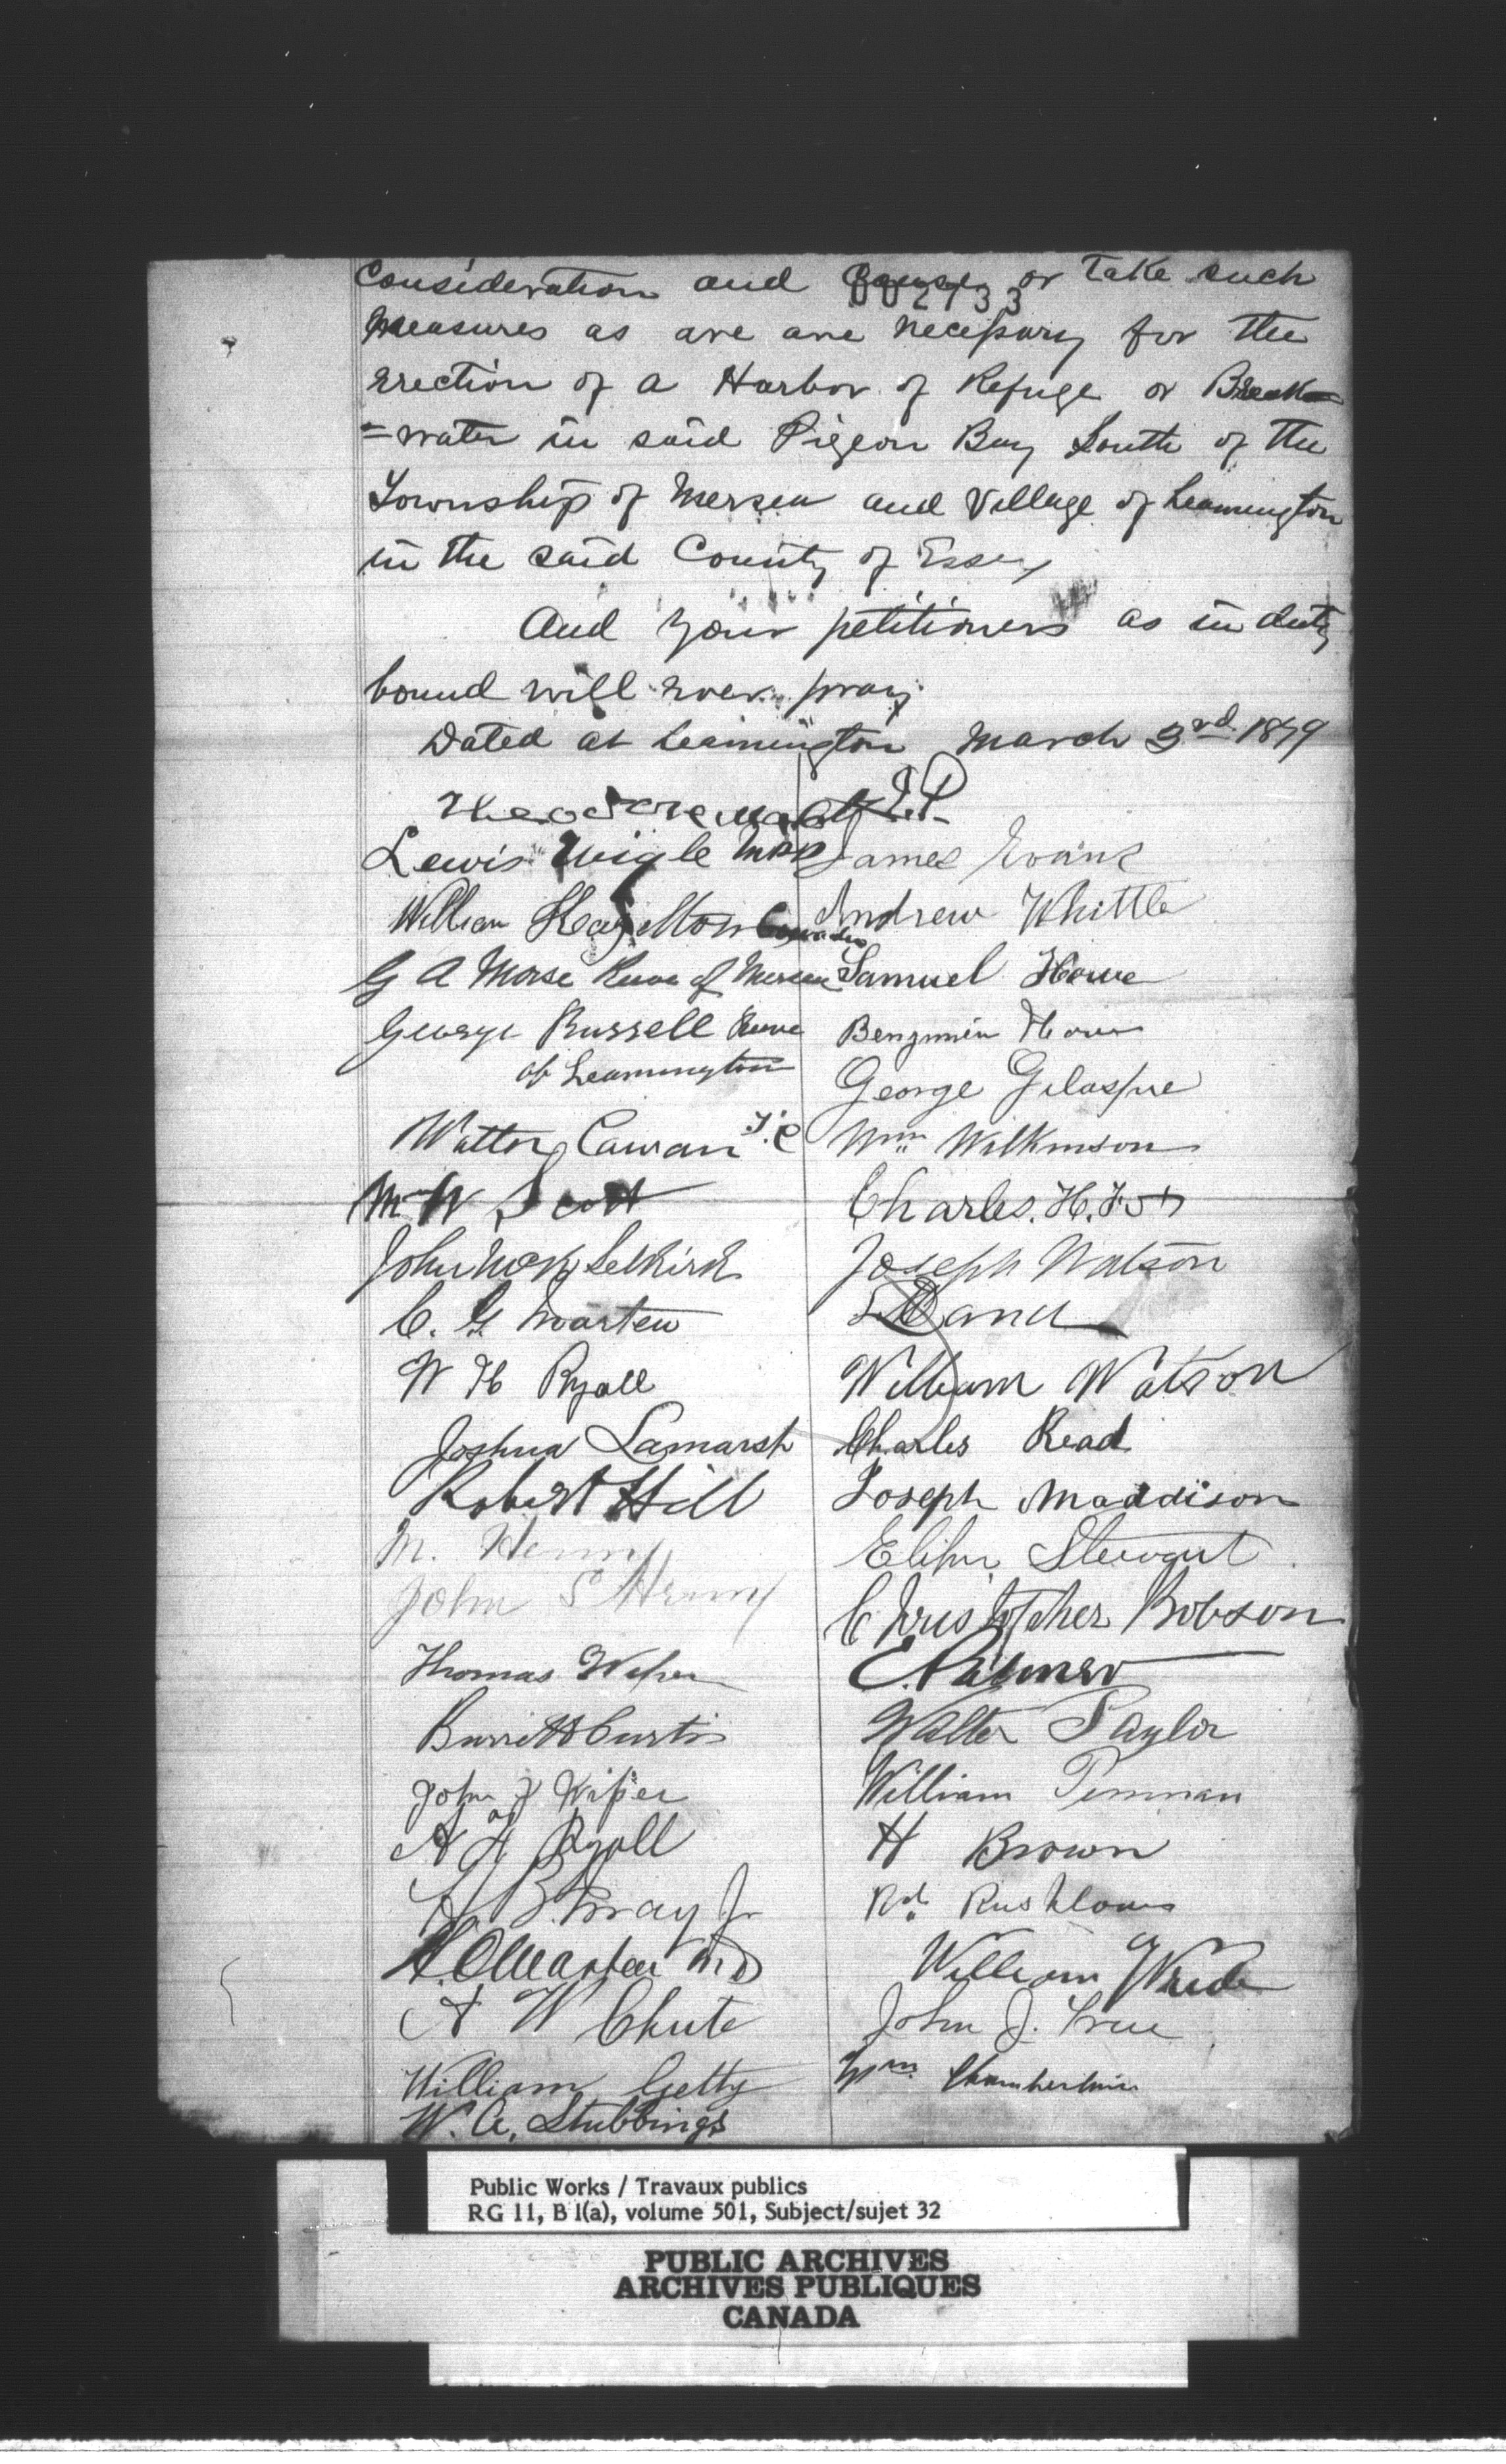 consideration and cause or take such
002733
Measures as are are necessary for the
erection of a Harbor of Refuge or Break
=water in said Pigeon Bay South of the
Township of Mersea and Village of Leamington
in the said County of Essex
And your petitioners as in duty
bound will ever pray
Dated at Leamington March 3rd 1879
Theodore Malott J.P.
Lewis Wigle MPP
William Hazelton
G A Morse Reeve of Mersea
George Russell Reeve
of Leamington
Walter Cowan
M W Scott
John McK Selkirk
C. G Warten
W H Ryall
Joshua Lamarsh
Robert Hill
M. Henry
John S Henry
Thomas Wiper
Burritt Curtis
John J Wiper
A H Ryall
B. Gray Jr
MD
A W Chute
William Getty
W. A. Stubbings
James Evans
Andrew Whittle
Samuel Howe
Benjamin Howe
George Gilaspie
Wm Wilkinson
Charles. H. Fox
Joseph Watson
William Watson
Charles Read
Joseph Maddison
Elihu Stewart
Christopher Bobson
E. Palmer
Walter Taylor
William Penman
H Brown
Rd.
William Wride
John J. True
Wm Chamberlain
Public Works / Travaux publics
RG 11, B 1(a), volume 501, Subject/sujet 32
PUBLIC ARCHIVES
ARCHIVES PUBLIQUES
CANADA